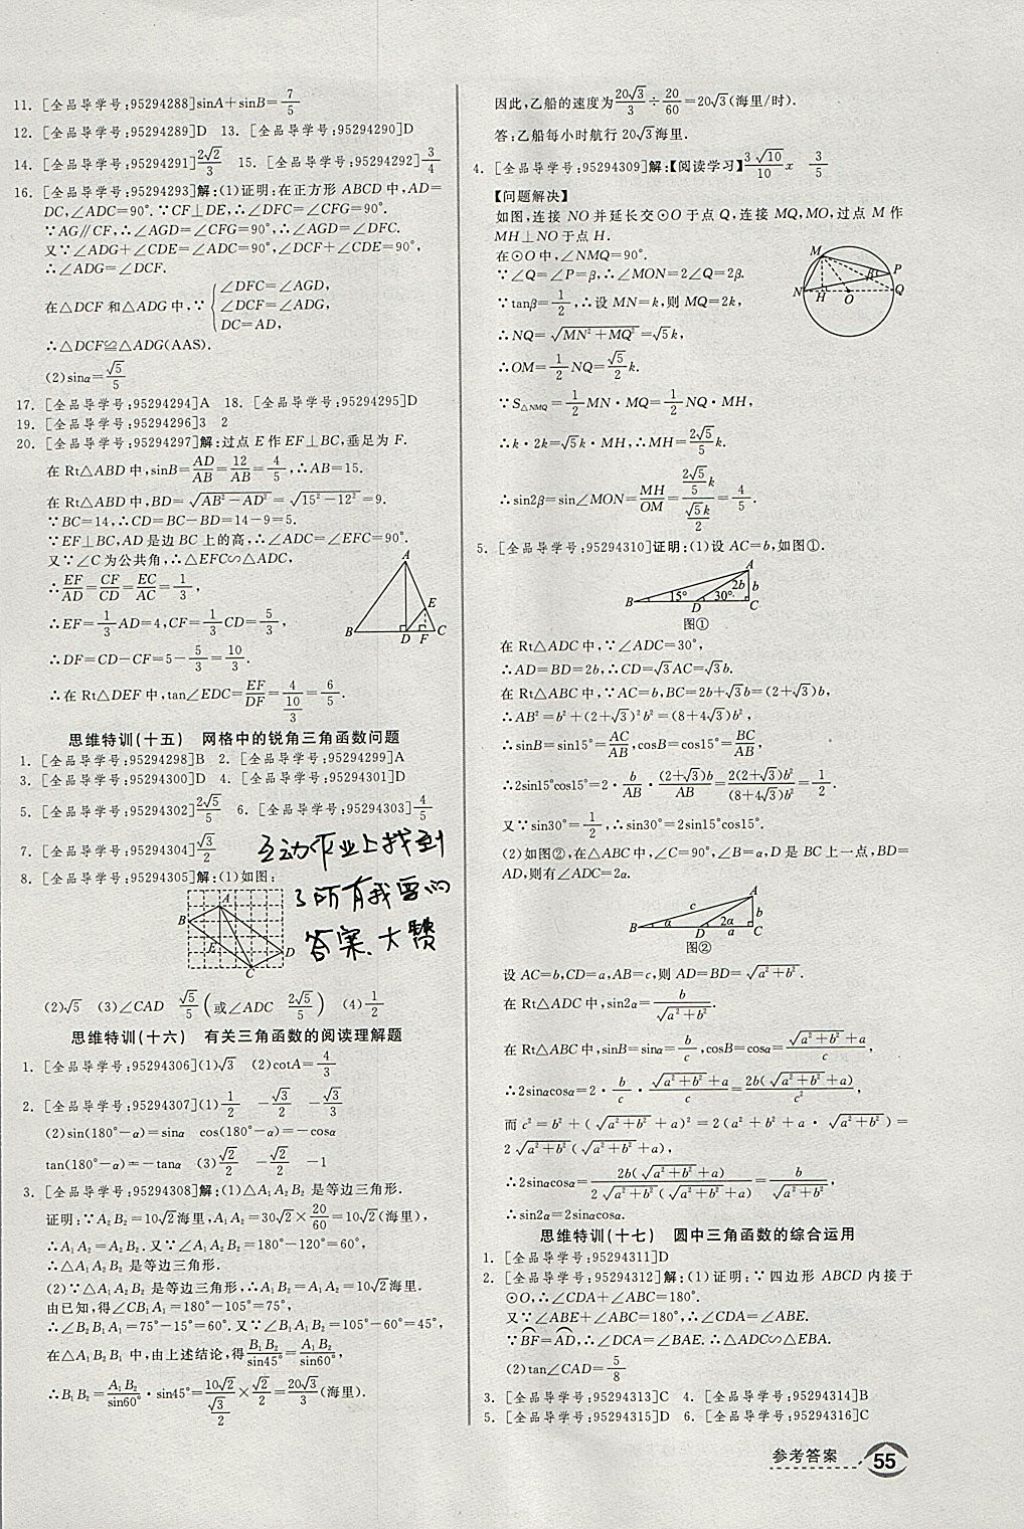 11. [全品导学号:95294288]sinA+sinB=7/5
12. [全品导学号:95294289]D 13. [全品导学号:95294290]D
14. [全品导学号:95294291]2√2/3 15. [全品导学号:95294292]3/4
16. [全品导学号:95294293]解:(1)证明:在正方形 ABCD 中,AD=
DC,∠ADC=90°.∵CF⊥DE,∴∠DFC=∠CFG=90°.
∵AG∥CF,∴∠AGD=∠CFG=90°,∴∠AGD=∠DFC.
又∵∠ADG+∠CDE=∠ADC=90°,∠DCF+∠CDE=90°,
∴∠ADG=∠DCF.
在△DCF 和△ADG 中,∵{∠DFC=∠AGD,
∠DCF=∠ADG,
DC=AD,
∴△DCF≌△ADG(AAS).
(2)sinα=√5/5
17. [全品导学号:95294294]A 18. [全品导学号:95294295]D
19. [全品导学号:95294296]3 2
20. [全品导学号:95294297]解:过点 E 作 EF⊥BC,垂足为 F.
在 Rt△ABD 中,sinB=AD/AB=12/AB=4/5,∴AB=15.
在 Rt△ABD 中,BD=√(AB²-AD²)=√(15²-12²)=9.
∵BC=14,∴CD=BC-BD=14-9=5.
∵EF⊥BC,AD 是边 BC 上的高,∴∠ADC=∠EFC=90°.
又∵∠C 为公共角,∴△EFC∽△ADC,
∴EF/AD=CF/CD=EC/AC=1/3,
∴EF=1/3AD=4,CF=1/3CD=5/3,
∴DF=CD-CF=5-5/3=10/3.
∴在 Rt△DEF 中,tan∠EDC=EF/DF=4/(10/3)=6/5.
A
E
B D F C
思维特训(十五) 网格中的锐角三角函数问题
1. [全品导学号:95294298]B 2. [全品导学号:95294299]A
3. [全品导学号:95294300]D 4. [全品导学号:95294301]D
5. [全品导学号:95294302]2√5/5 6. [全品导学号:95294303]4/5
7. [全品导学号:95294304]√3/2
8. [全品导学号:95294305]解:(1)如图:
互动作业上找到
了所有我要的
答案、大赞
A
B
E
D
C
(2)√5 (3)∠CAD √5/5(或∠ADC 2√5/5) (4)1/2
思维特训(十六) 有关三角函数的阅读理解题
1. [全品导学号:95294306](1)√3 (2)cotA=4/3
2. [全品导学号:95294307](1)1/2 -√3/2 -√3/3
(2)sin(180°-α)=sinα cos(180°-α)=-cosα
tan(180°-α)=-tanα (3)√2/2 -√2/2 -1
3. [全品导学号:95294308]解:(1)△A₁A₂B₂ 是等边三角形.
证明:∵A₂B₂=10√2海里,A₁A₂=30√2×20/60=10√2(海里),
∴A₁A₂=A₂B₂.又∵∠A₁A₂B₂=180°-120°=60°,
∴△A₁A₂B₂ 是等边三角形.
(2)∵△A₁A₂B₂ 是等边三角形,∴A₁B₂=A₁A₂=10√2海里.
由已知,得∠CB₁A₁=180°-105°=75°,
∴∠B₂B₁A₁=75°-15°=60°.又∵∠B₁A₁B₂=105°-60°=45°,
在△A₁B₂B₁ 中,由上述结论,得B₁B₂/sin45°=A₁B₂/sin60°,
∴B₁B₂=A₁B₂/sin60°·sin45°=10√2/(√3/2)×√2/2=20√3/3(海里).
因此,乙船的速度为20√3/3÷20/60=20√3(海里/时).
答:乙船每小时航行 20√3海里.
4. [全品导学号:95294309]解:【阅读学习】3√10/10 x 3/5
【问题解决】
如图,连接 NO 并延长交⊙O 于点 Q,连接 MQ,MO,过点 M 作
MH⊥NO 于点 H.
在⊙O 中,∠NMQ=90°.
∵∠Q=∠P=β,∴∠MON=2∠Q=2β.
∵tanβ=1/2,∴设 MN=k,则 MQ=2k,
∴NQ=√(MN²+MQ²)=√5k,
∴OM=1/2NQ=√5/2k.
∵S△NMQ=1/2MN·MQ=1/2NQ·MH,
∴k·2k=√5k·MH,∴MH=2√5/5k.
∴sin2β=sin∠MON=MH/OM=(2√5/5k)/(√5k/2)=4/5.
M
β P
N H O Q
5. [全品导学号:95294310]证明:(1)设 AC=b,如图①.
A
2b b
B 15° D 30° C
图①
在 Rt△ADC 中,∵∠ADC=30°,
∴AD=BD=2b,∴CD=√3AC=√3b.
在 Rt△ABC 中,∵AC=b,BC=2b+√3b=(2+√3)b,
∴AB²=b²+(2+√3)²b²=(8+4√3)b²,
∴sinB=sin15°=AC/AB,cosB=cos15°=BC/AB,
∴2sin15°cos15°=2·b/AB·(2+√3)b/AB=2(2+√3)b²/(8+4√3)b²=1/2.
又∵sin30°=1/2,∴sin30°=2sin15°cos15°.
(2)如图②,在△ABC 中,∠C=90°,∠B=α,D 是 BC 上一点,BD=
AD,则有∠ADC=2α.
A
c b
B α D 2α a C
图②
设 AC=b,CD=a,AB=c,则 AD=BD=√(a²+b²).
在 Rt△ADC 中,sin2α=b/√(a²+b²).
在 Rt△ABC 中,sinB=sinα=b/c,cosB=cosα=(√(a²+b²)+a)/c,
∴2sinαcosα=2·b/c·(√(a²+b²)+a)/c=2b(√(a²+b²)+a)/c²,
而 c²=b²+(√(a²+b²)+a)²=2(a²+b²+a·√(a²+b²))=
2√(a²+b²)(√(a²+b²)+a),
∴2sinαcosα=2b(√(a²+b²)+a)/2√(a²+b²)(√(a²+b²)+a)=b/√(a²+b²),
∴sin2α=2sinαcosα.
思维特训(十七) 圆中三角函数的综合运用
1. [全品导学号:95294311]D
2. [全品导学号:95294312]解:(1)证明:∵四边形 ABCD 内接于
⊙O,∴∠CDA+∠ABC=180°.
又∵∠ABE+∠ABC=180°,∴∠CDA=∠ABE.
∵BF⌒=AD⌒,∴∠DCA=∠BAE.∴△ADC∽△EBA.
(2)tan∠CAD=5/8
3. [全品导学号:95294313]C 4. [全品导学号:95294314]B
5. [全品导学号:95294315]D 6. [全品导学号:95294316]C
参考答案 55